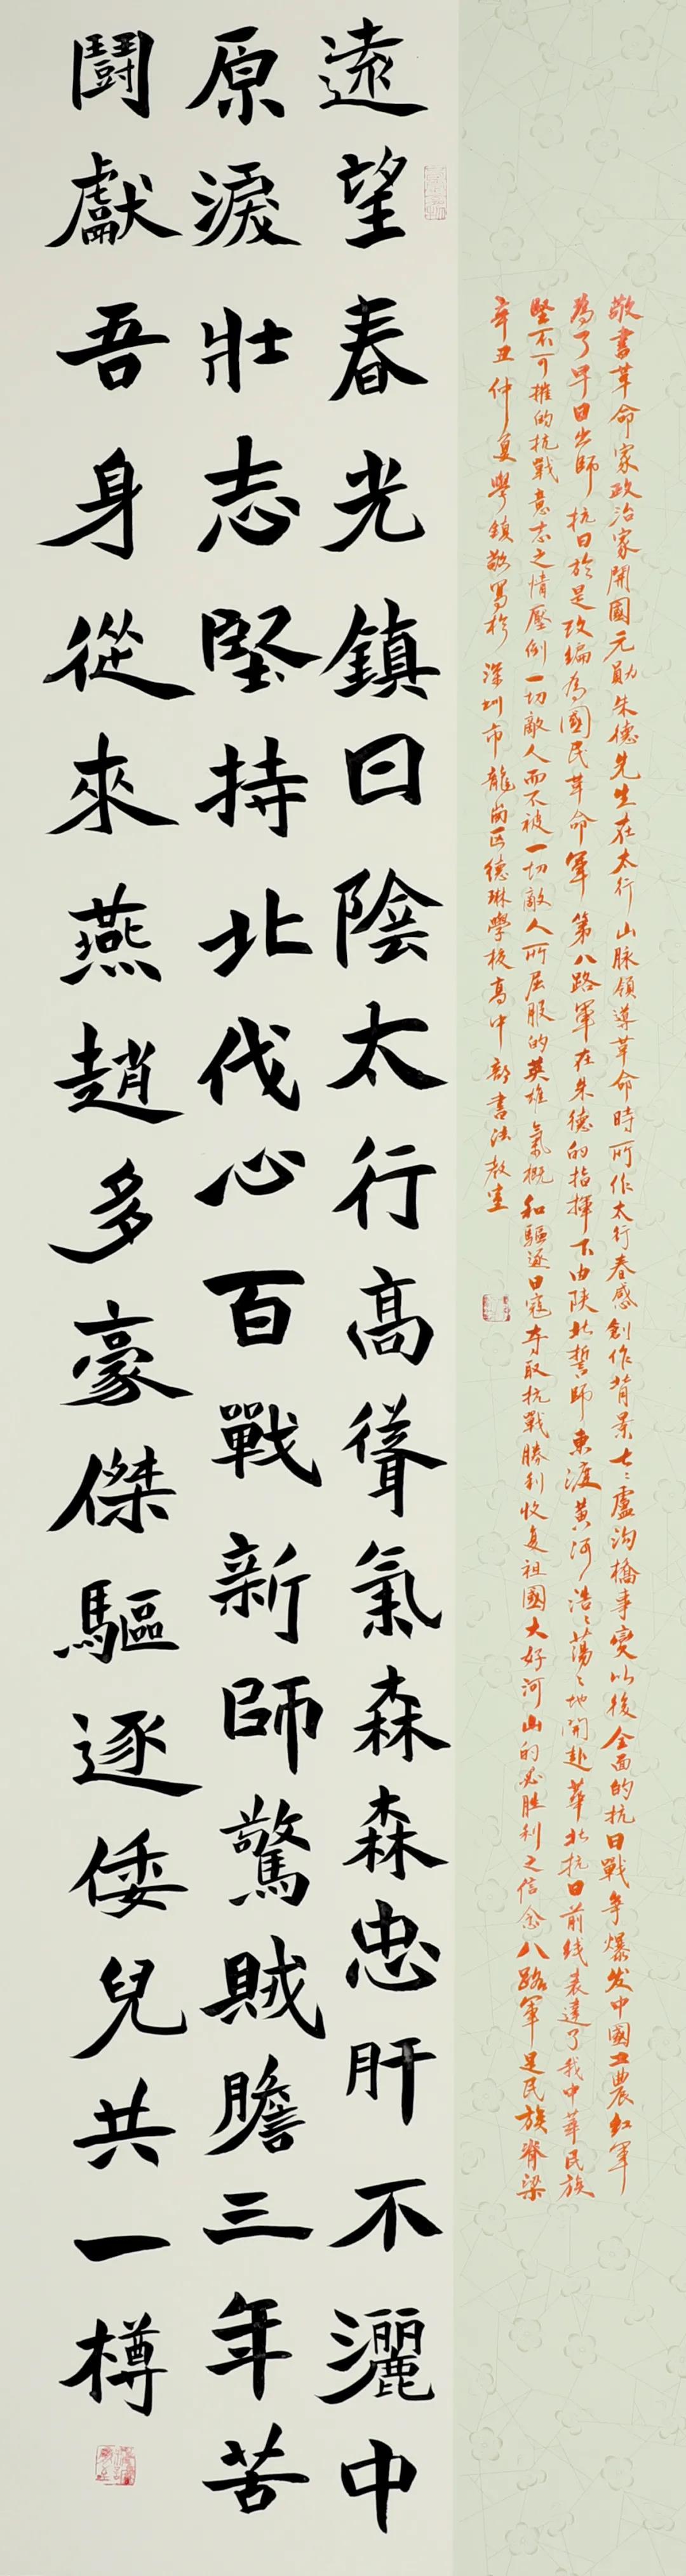 敬書革命家政治家開國元勛朱德先生在太行山脉領導革命時所作太行春感創作背景七七盧溝橋事变以後全面的抗日戰争爆发中國工農红軍
為了早日出師抗日於是改編為國民革命軍第八路軍在朱德的指揮下由陕北誓師東渡黄河浩浩蕩蕩地開赴華北抗日前线表達了我中華民族
堅不可摧的抗戰意志之情壓倒一切敵人而不被一切敵人所屈服的英雄氣概和驅逐日寇夺取抗戰勝利收复祖國大好河山的必胜利之信念八路軍是民族脊梁
辛丑仲夏學鎮敬寫於深圳市龍崗区德琳學校高中部書法教室
遠望春光鎮日陰太行高聳氣森森忠肝不灑中
原淚壯志堅持北伐心百戰新師驚賊膽三年苦
鬪獻吾身從來燕趙多豪傑驅逐倭兒共一樽